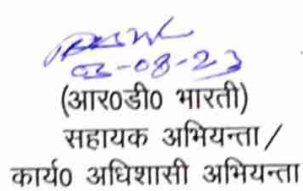 03-08-23
(आर०डी० भारती)
सहायक अभियन्ता /
कार्य० अधिशासी अभियन्ता